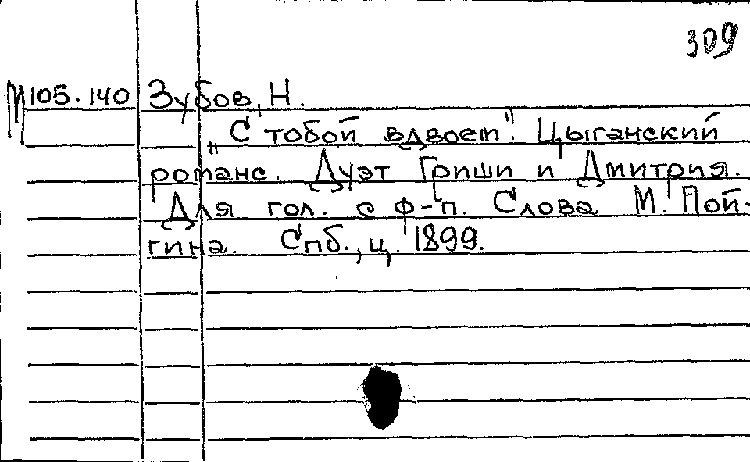 309
М105.140 Зубов, Н.
„С тобой вдвоем". Цыганский
романс. Дуэт Гриши и Дмитрия.
Для гол. с ф-п. Слова М. Пой-
гина. Спб., ц. 1899.